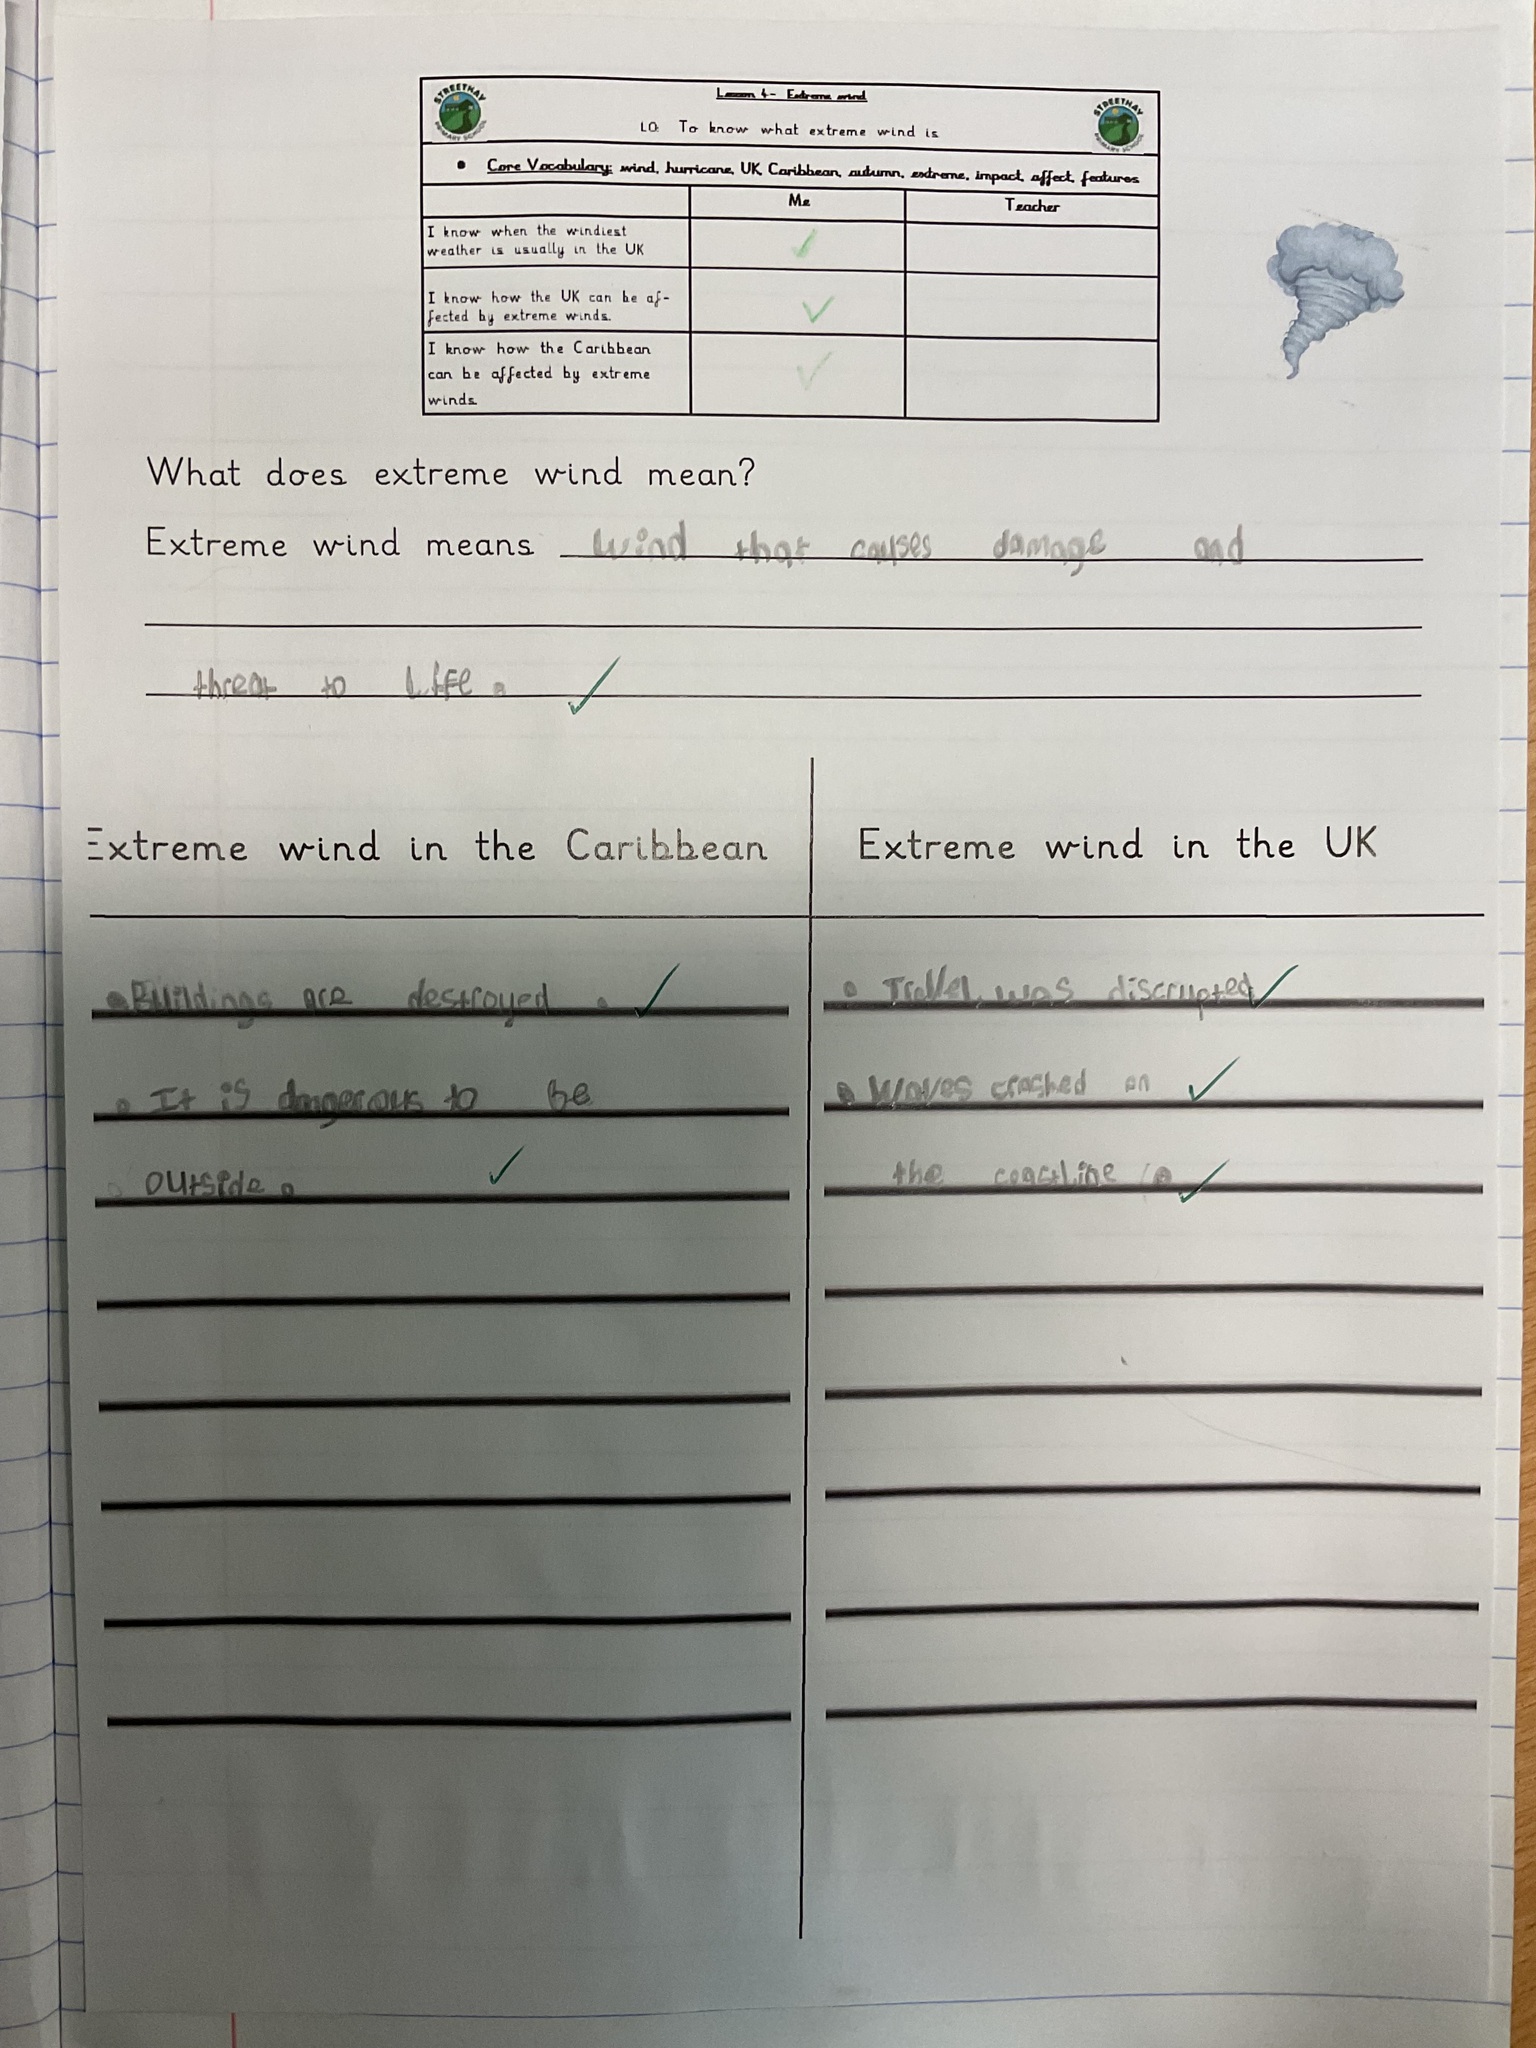 STREETHAY
PRIMARY SCHOOL
Lesson 4- Extreme wind
STREETHAY
PRIMARY SCHOOL
LO: To know what extreme wind is
• Core Vocabulary: wind, hurricane, UK, Caribbean, autumn, extreme, impact, affect, features
Me
Teacher
I know when the windiest
weather is usually in the UK
I know how the UK can be af-
fected by extreme winds.
I know how the Caribbean
can be affected by extreme
winds.
What does extreme wind mean?
Extreme wind means wind that causes damage and
threat to Life.
Extreme wind in the Caribbean
• Buildings are destroyed.
• It is dangerous to be
outside.
Extreme wind in the UK
• Travel was discrupted
• Waves crashed on
the coastline.